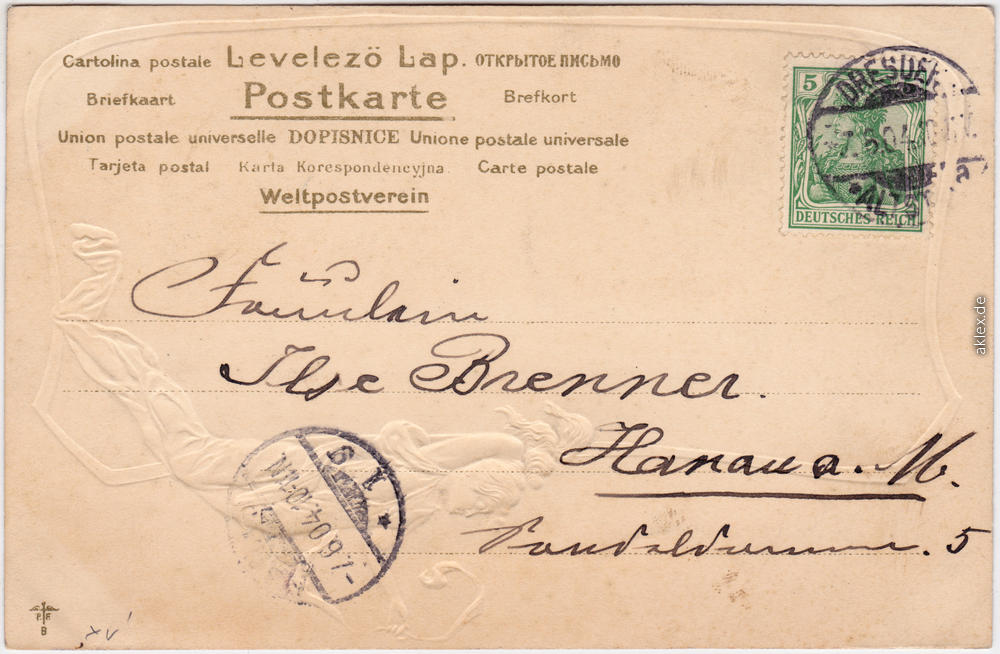 Cartolina postale Levelező Lap. ОТКРЫТОЕ ПИСЬМО
Briefkaart Postkarte Brefkort
Union postale universelle DOPISNICE Unione postale universale
Tarjeta postal Karta Korespondencyjna Carte postale
Weltpostverein
5
DEUTSCHES REICH
DRESDEN
*ALTST.
Fräulein
Ilse Brenner.
Hanau a. M.
5
aklex.de
B
XV